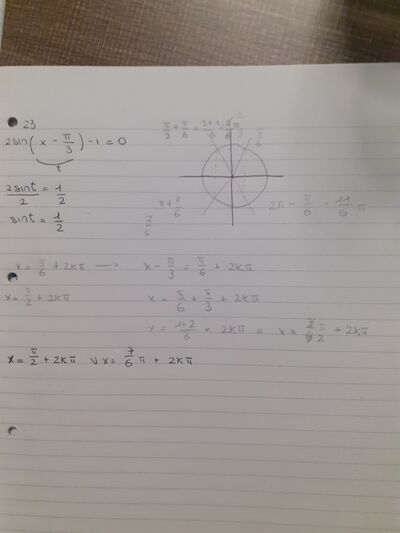 23
2sin(x - π/3) - 1 = 0
t
2sint/2 = 1/2
sint = 1/2
π/2 + π/6 = 3+1/6
π/6
π + π/6
7/6
2π - π/6 = 11/6 π
x = π/6 + 2kπ → x - π/3 = π/6 + 2kπ
x = π/2 + 2kπ x = π/6 + π/3 + 2kπ
x = 1+2/6 + 2kπ = x = π/2 + 2kπ
x = π/2 + 2kπ v x = 7/6 π + 2kπ